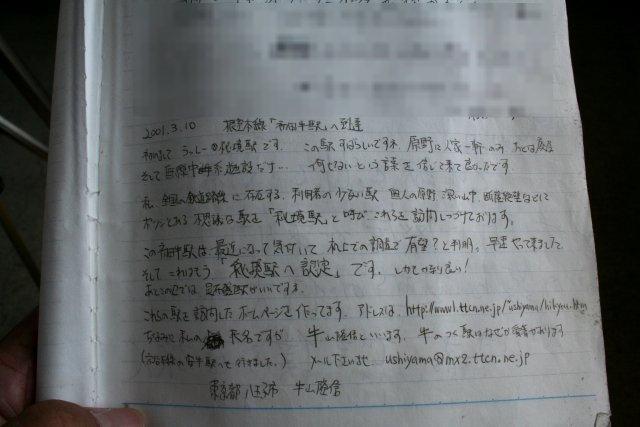 2001.3.10 根室本線「初田牛駅」へ到達
初めまして うっしー@秘境駅です。この駅すばらしいですネ 原野に人家一軒のみ
そして 何もないという言葉を信じて来て良かったです
私、全国の鉄道路線に存在する、利用者の少ない駅 無人の原野、深い山中、断崖絶壁などに
ポツンとある不思議な駅を「秘境駅」と呼び、これらを訪問しつづけております。
この初田牛駅は最近になって気付いて 机上での調査で有望?と判明。早速やって来ました
そして これはもう「秘境駅へ認定」です。しかもかなり高い!
あとこの辺では 駅がいいですネ
これらの駅を訪問したホームページを作ってます。アドレスは、http://www1.ttcn.ne.jp/ushiyama/hikyou.htm
ちなみに私の 氏名ですが 牛山隆信といいます。牛のつく駅はなぜか愛着があります
(宗谷本線の安牛駅へも行きました。) メール下さいませ ushiyama@mx2.ttcn.ne.jp
東京都八王子市 牛山隆信